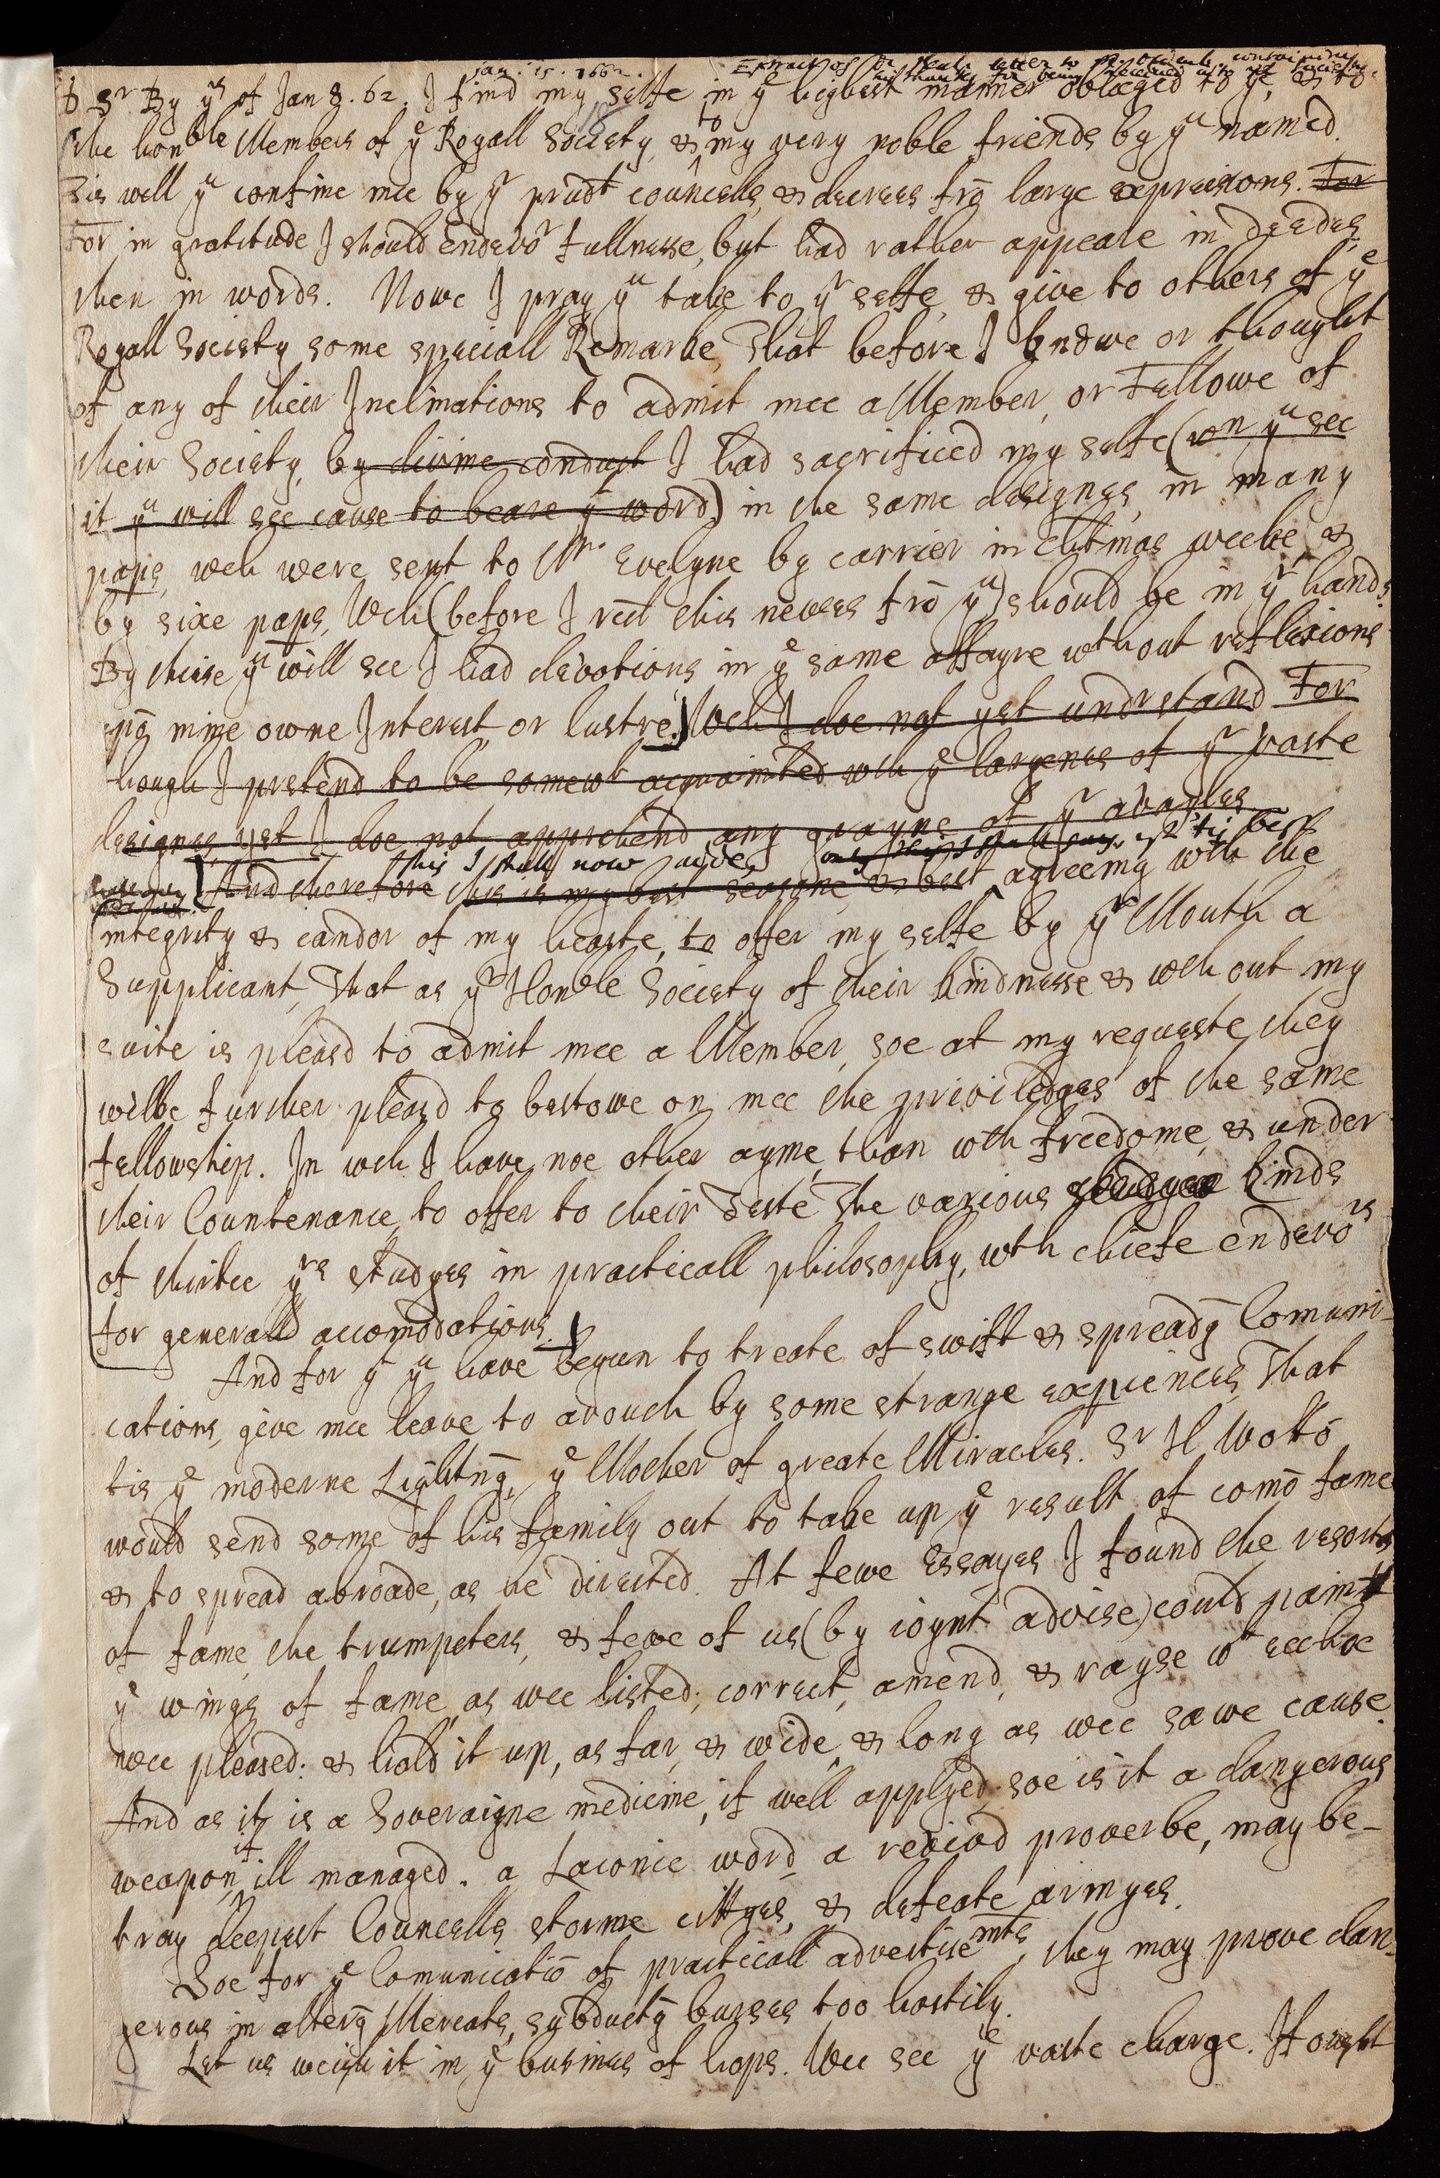 Jan. 15. 1662. Extract of Dr Beale letter to Mr Oldenb. containing
his thanks for being received into the Society.
Sr By yrs of Jan 8. 62. I find my selfe in ye highest manner obleged to yu, as to
the honble Members of ye Royall Society, & to my very noble friends by yu named.
Tis well yu confine mee by yr prudt councells, & decrees frō large expressions. For
For in gratitude I should endevor fullnesse, but had rather appeare in deedes,
then in words. Nowe I pray yu take to yr selfe, & give to others of ye
Royall Society some speciall Remarke, That before I knowe or thought
of any of their Inclinations to admit mee a Member, or Fellowe of
their Society, by divine conduct I had sacrificed my selfe (wn yu see
it yu will see cause to beare ye word) in the same designes, in many
paps, wch were sent to Mr. Evelyne by carrier in Chtmas weeke, &
by sixe paps, Wch (before I recd this newes frō yu) should be in yr hands.
By these yu will see I had devotions in ye same affayre wthout reflexions
upō mine owne Interest or lustre. Wch I doe not yet undrstand For
though I pretend to be somewt acquainted wch ye largenes of yr vaste
designes, yet I doe not apprehend any grayne of yr
this I shall now adde, only this I shall say, yt 'tis best
And therefore this is my best seasone & best agreeing wth the
integrity & candor of my hearte, to offer my selfe by yr Mouth a
Supplicant, That as yr Honble Society of their kindnesse & wthout my
suite is pleasd to admit mee a Member, soe at my requeste they
wilbe further pleasd to bestowe on mee the priviledges of the same
fellowship. In wch I have noe other ayme, than wth freedome, & under
their Countenance, to offer to their Teste The various studyes kinds
of thirtee yrs studyes in practicall philosophy, wth chiefe endevors
for generall accomodations.
And for yt yu have begun to treate of swift & spreadg Comuni-
cations, give mee leave to avouch by some strange expiences, That
tis ye moderne Lightnīg, ye Mother of greate Miracles. Sr H. Wottō
would send some of his family out to take up ye result of comō fame
& to spread abroade, as he directed. At fewe Essayes I found the resorts
of fame, the trumpeters, & fewe of us (by ioynt advise) could paint
ye wings of fame, as wee listed; correct, amend, & rayse wt ecchoe
wee pleased: & hold it up, as far, & wide, & long as wee sawe cause.
And as it is a Soveraigne medicine, if well applyed: soe is it a dangerous
weapon, if ill managed. a Laconic word, a revivd proverbe, may be-
tray deepest Councells, storme cittyes, & defeate armyes.
Soe for ye Comunicatiō of practicall advertisemts, they may prove dan-
gerous in alterg Mercats, subductg burses too hastily.
Let us weigh it in ye busines of hops. Wee see ye vaste charge. It ought